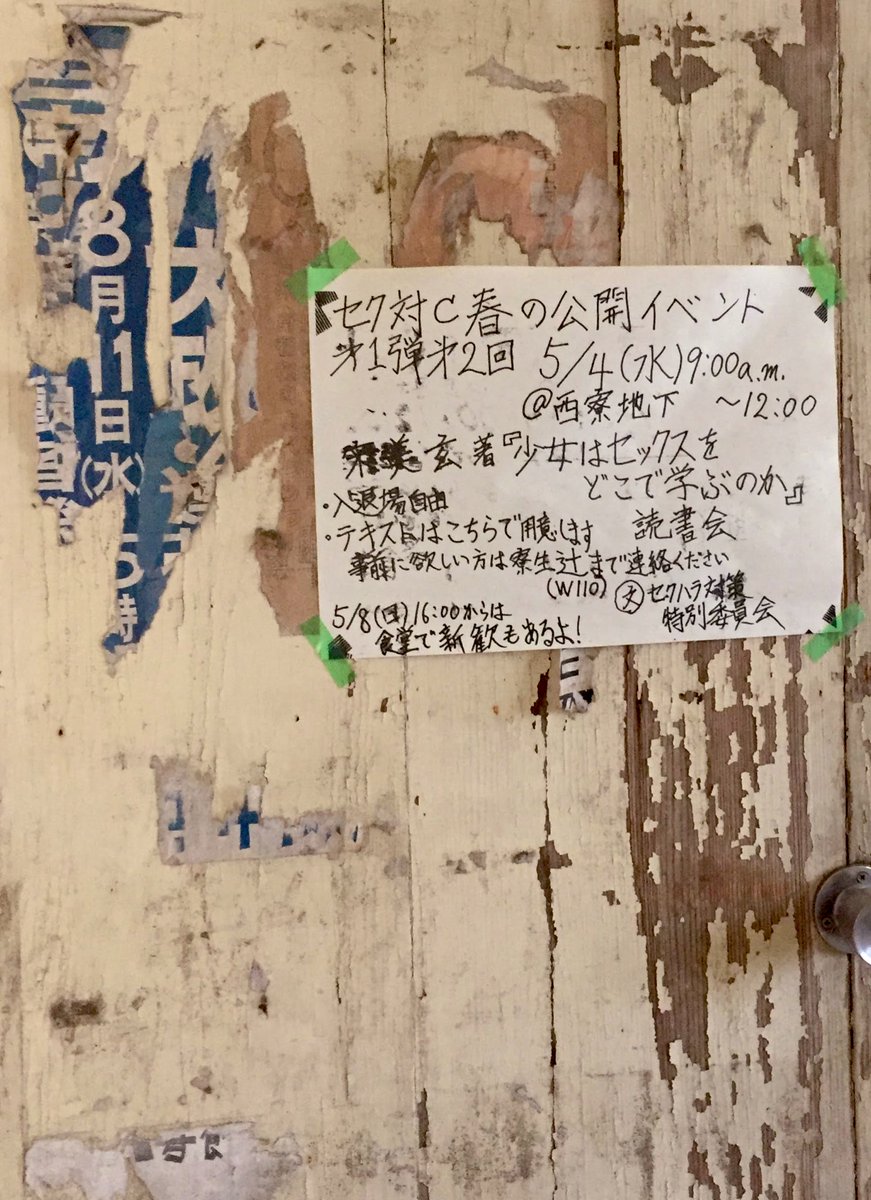 8月11日(水)
セク対C春の公開イベント
第1弾第2回 5/4(水)9:00a.m.
@西寮地下 ～12:00
宋美玄著『少女はセックスを
どこで学ぶのか』
読書会
・入退場自由
・テキストはこちらで用意します
事前に欲しい方は寮生辻まで連絡ください
(W110)
文セクハラ対策
特別委員会
5/8(日)16:00からは
食堂で新歓もあるよ!